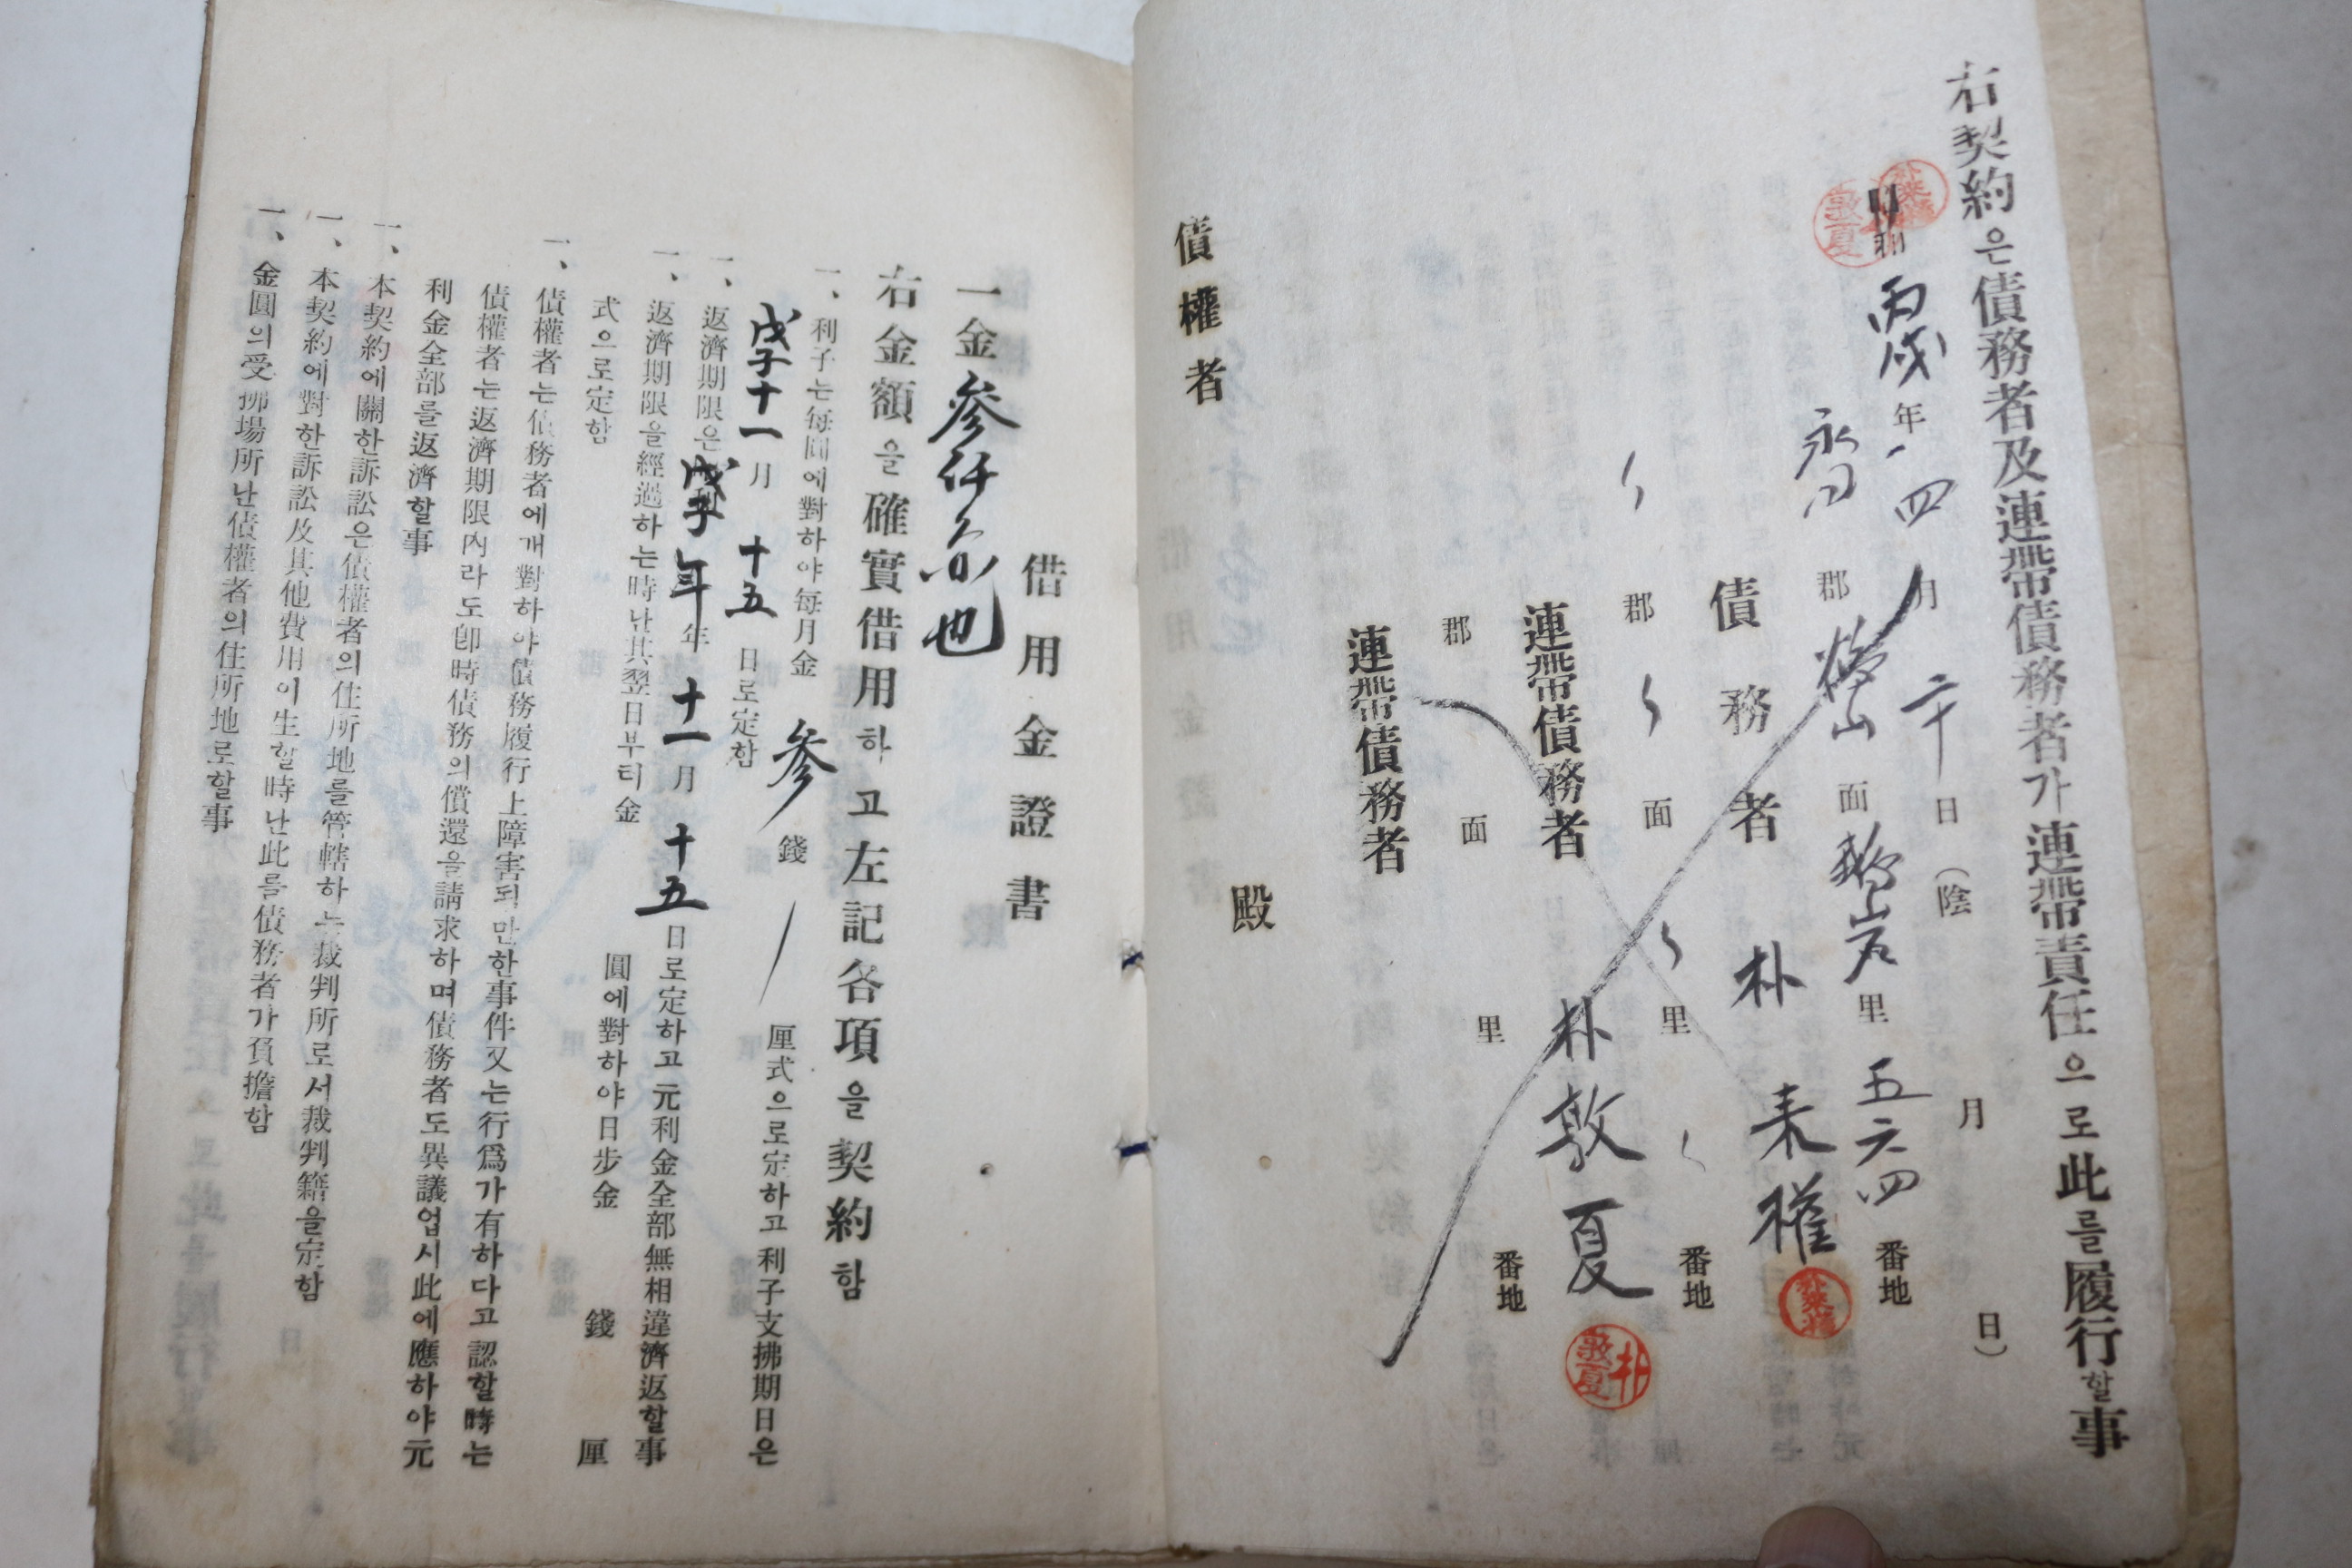 右契約은債務者及連帶債務者가連帶責任으로此를履行할事
丙戌年四月二十日(陰 月 日)
郡 面 里五六四番地
債務者 朴來權
郡 面 里 番地
連帶債務者 朴敦夏
郡 面 里 番地
連帶債務者
債權者 殿
借用金證書
一金參仟 也
右金額을確實借用하고左記各項을契約함
一、利子는每圓에對하야每月金參錢 厘式으로定하고利子支拂期日은
戊子十一月十五日로定함
一、返濟期限은戊子年年十一月十五日로定하고元利金全部無相違濟返할事
一、返濟期限을經過하는時난其翌日부터金 圓에對하야日步金 錢 厘
式으로定함
一、債權者는債務者에개對하야債務履行上障害되만한事件又는行爲가有하다고認할時는
債權者는返濟期限內라도卽時債務의償還을請求하며債務者도異議업시此에應하야元
利金全部를返濟할事
一、本契約에關한訴訟은債權者의住所地를管轄하는裁判所로서裁判籍을定함
一、本契約에對한訴訟及其他費用이生할時난此를債務者가負擔함
一、金圓의受拂場所난債權者의住所地로할事